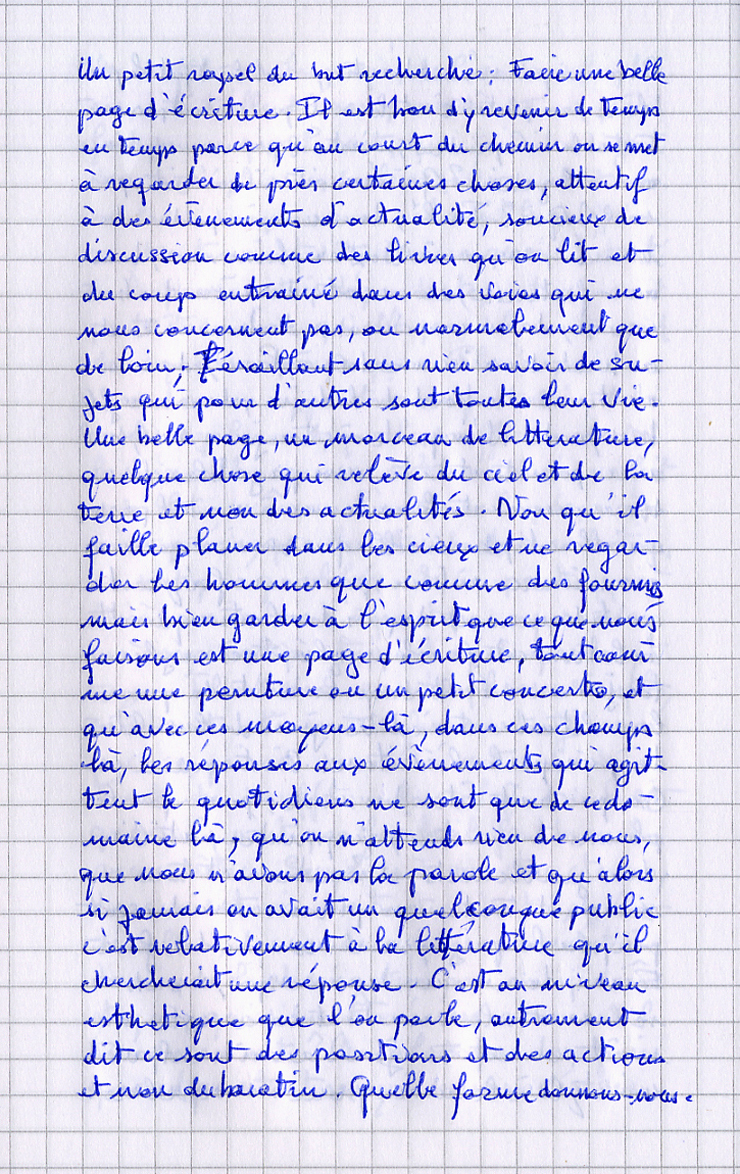 Un petit rappel du but recherché : Faire une belle
page d'écriture. Il est bon d'y revenir de temps
en temps parce qu'au court du chemin on se met
à regarder de près certaines choses, attentif
à des évènements d'actualité, soucieux de
discussion comme des livres qu'on lit et
du coup entrainé dans des voies qui ne
nous concernent pas, ou normalement que
de loin, sans rien savoir de su-
jets qui pour d'autres sont toutes leur vie.
Une belle page, un morceau de littérature,
quelque chose qui relève du ciel et de la
terre et non des actualités. Non qu'il
faille planer dans les cieux et ne regar-
der les hommes que comme des fourmis
mais bien garder à l'esprit que ce que nous
faisons est une page d'écriture, tout com
me une peinture ou un petit concerto, et
qu'avec ces moyens-là, dans ces champs
là, les réponses aux évènements qui agit-
tent le quotidiens ne sont que de ce do-
maine là, qu'on n'attends rien de nous,
que nous n'avons pas la parole et qu'alors
si jamais on avait un quelconque public
c'est relativement à la littérature qu'il
chercherait une réponse. C'est au niveau
esthetique que l'on parle, autrement
dit ce sont des positions et des actions
et non du baratin. Quelle forme donnons-nous.